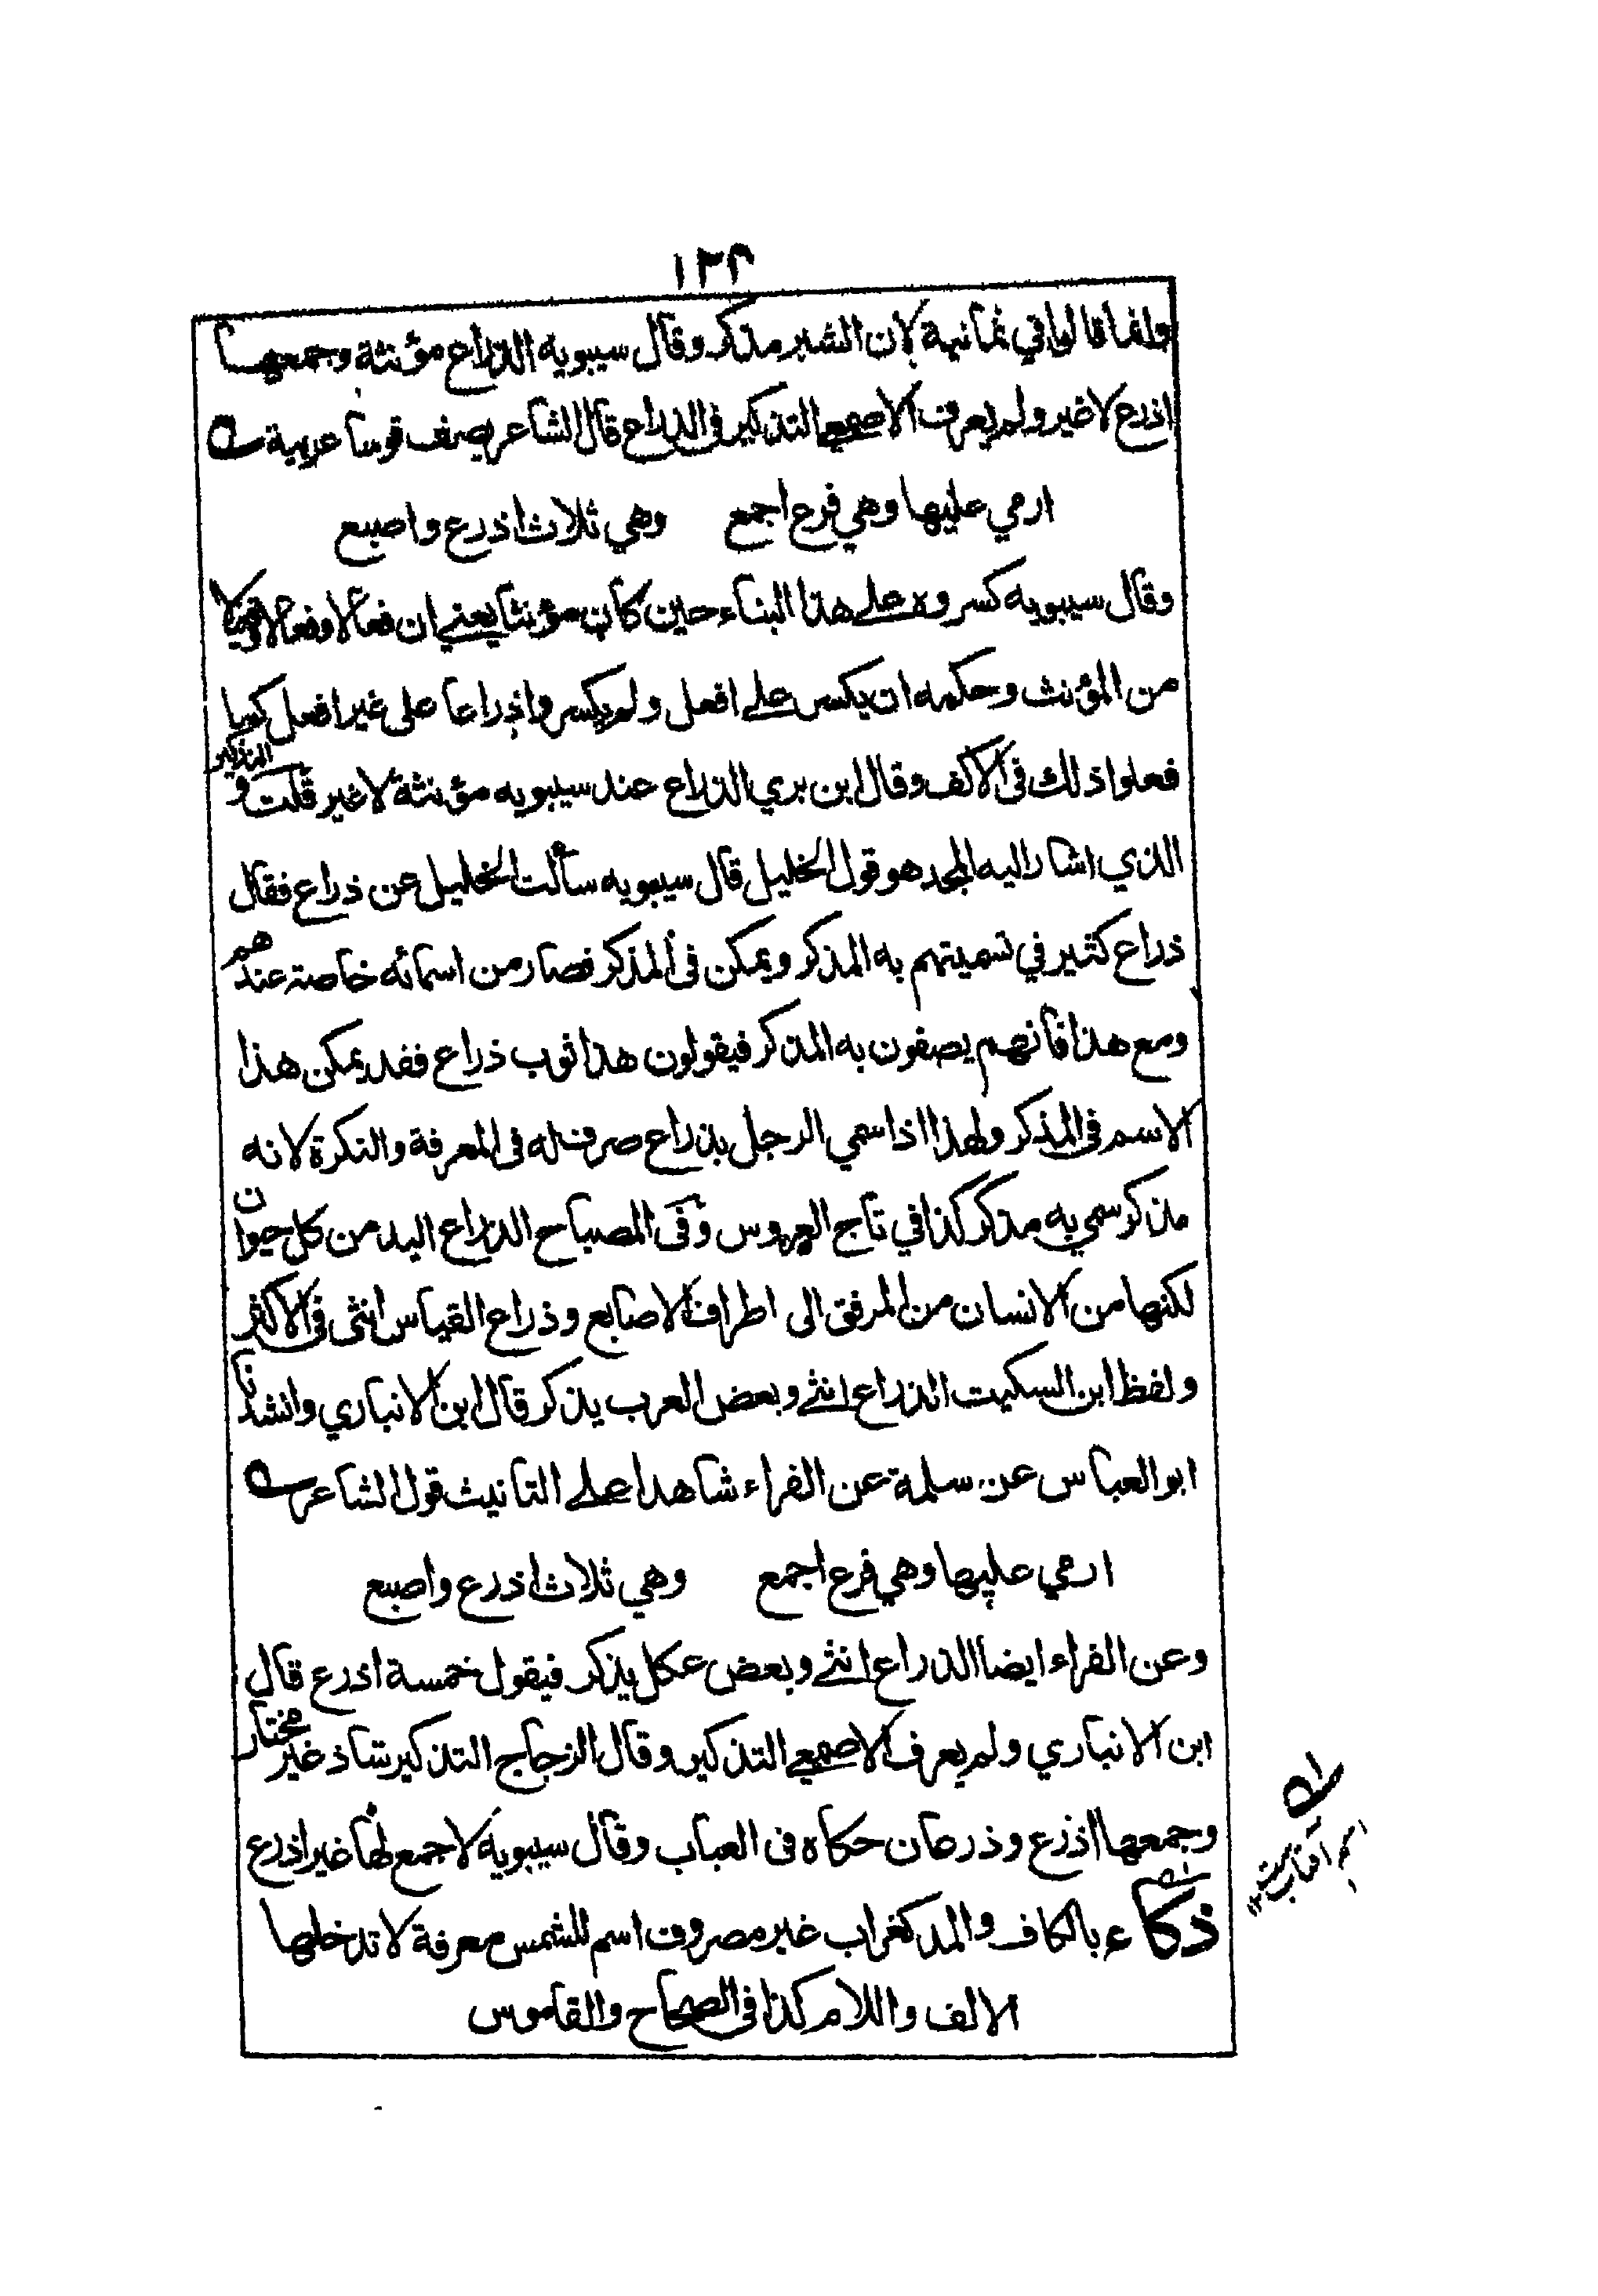 ١٣٢
ولهذا قالوا في ثمانية لان الشبر مذكر وقال سيبويه الذراع مؤنثة وجمعها
اذرع لا غير ولم يعرف الاصمعي التذكير في الذراع قال الشاعر يصف قوسا عربية
ارمي عليها وهي فرع اجمع وهي ثلاث اذرع واصبع
وقال سيبويه كسروه على هذا البناء حين كان مؤنثا يعني ان فعالا وفعالا وفعيلا
من المؤنث وحكمه ان يكسر على افعل ولم يكسروا ذراعا على غير افعل كما
فعلوا ذلك في الاكف وقال ابن بري الذراع عند سيبويه مؤنثة لا غير قلت والتذكير
الذي اشار اليه المجد هو قول الخليل قال سيبويه سألت الخليل عن ذراع فقال
ذراع كثير في تسميتهم به المذكر ويمكن في المذكر فصار من اسمائه خاصة عندهم
ومع هذا فانهم يصفون به المذكر فيقولون هذا ثوب ذراع فقد يمكن هذا
الاسم في المذكر ولهذا اذا سمي الرجل بذراع صرف له في المعرفة والنكرة لانه
مذكر سمي به مذكر كذا في تاج العروس وفى المصباح الذراع اليد من كل حيوان
لكنها من الانسان من المرفق الى اطراف الاصابع وذراع القياس انثى في الاكثر
ولفظ ابن السكيت الذراع انثى وبعض العرب يذكر قال ابن الانباري وانشدنا
ابو العباس عن سلمة عن الفراء شاهدا على التانيث قول الشاعر
ارمي عليها وهي فرع اجمع وهي ثلاث اذرع واصبع
وعن الفراء ايضا الذراع انثى وبعض عكل يذكر فيقول خمسة اذرع قال
ابن الانباري ولم يعرف الاصمعي التذكير وقال الزجاج التذكير شاذ غير مختار
وجمعها اذرع وذرعان حكاه فى العباب وقال سيبويه لا جمع لها غير اذرع
ذكاء بالكاف والمد كغراب غير مصروف اسم للشمس معرفة لا تدخلها
الالف واللام كذا في الصحاح والقاموس